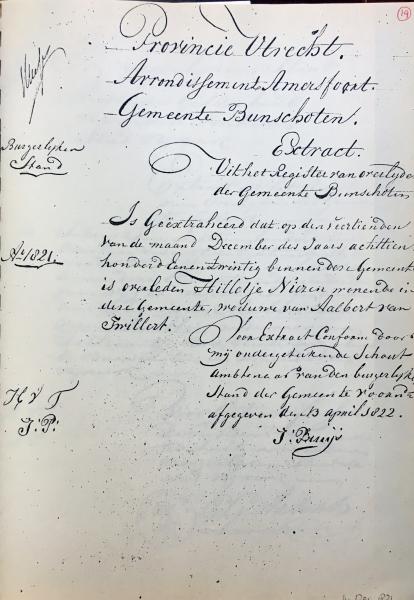 19
Provincie Utrecht.
Arrondissement Amersfoort.
Gemeente Bunschoten.
Burgerlyken
Stand
Extract.
Uit het Register van overlyde
der Gemeente Bunschoten
Aº 1821.
Is Geëxtraheerd dat op den veertienden
van de maand December des Jaars achttien
honderd Eenentwintig binnen deze Gemeent
is overleden Hilletje Nizen wonende in
deze Gemeente, weduwe van Aalbert van
Twillert.
Voor Extract Conform door
mij ondergetekende Schout
ambtenaar van den burgerlyke
Stand der Gemeente voorn
afgegeven den 13 april 1822.
H v T